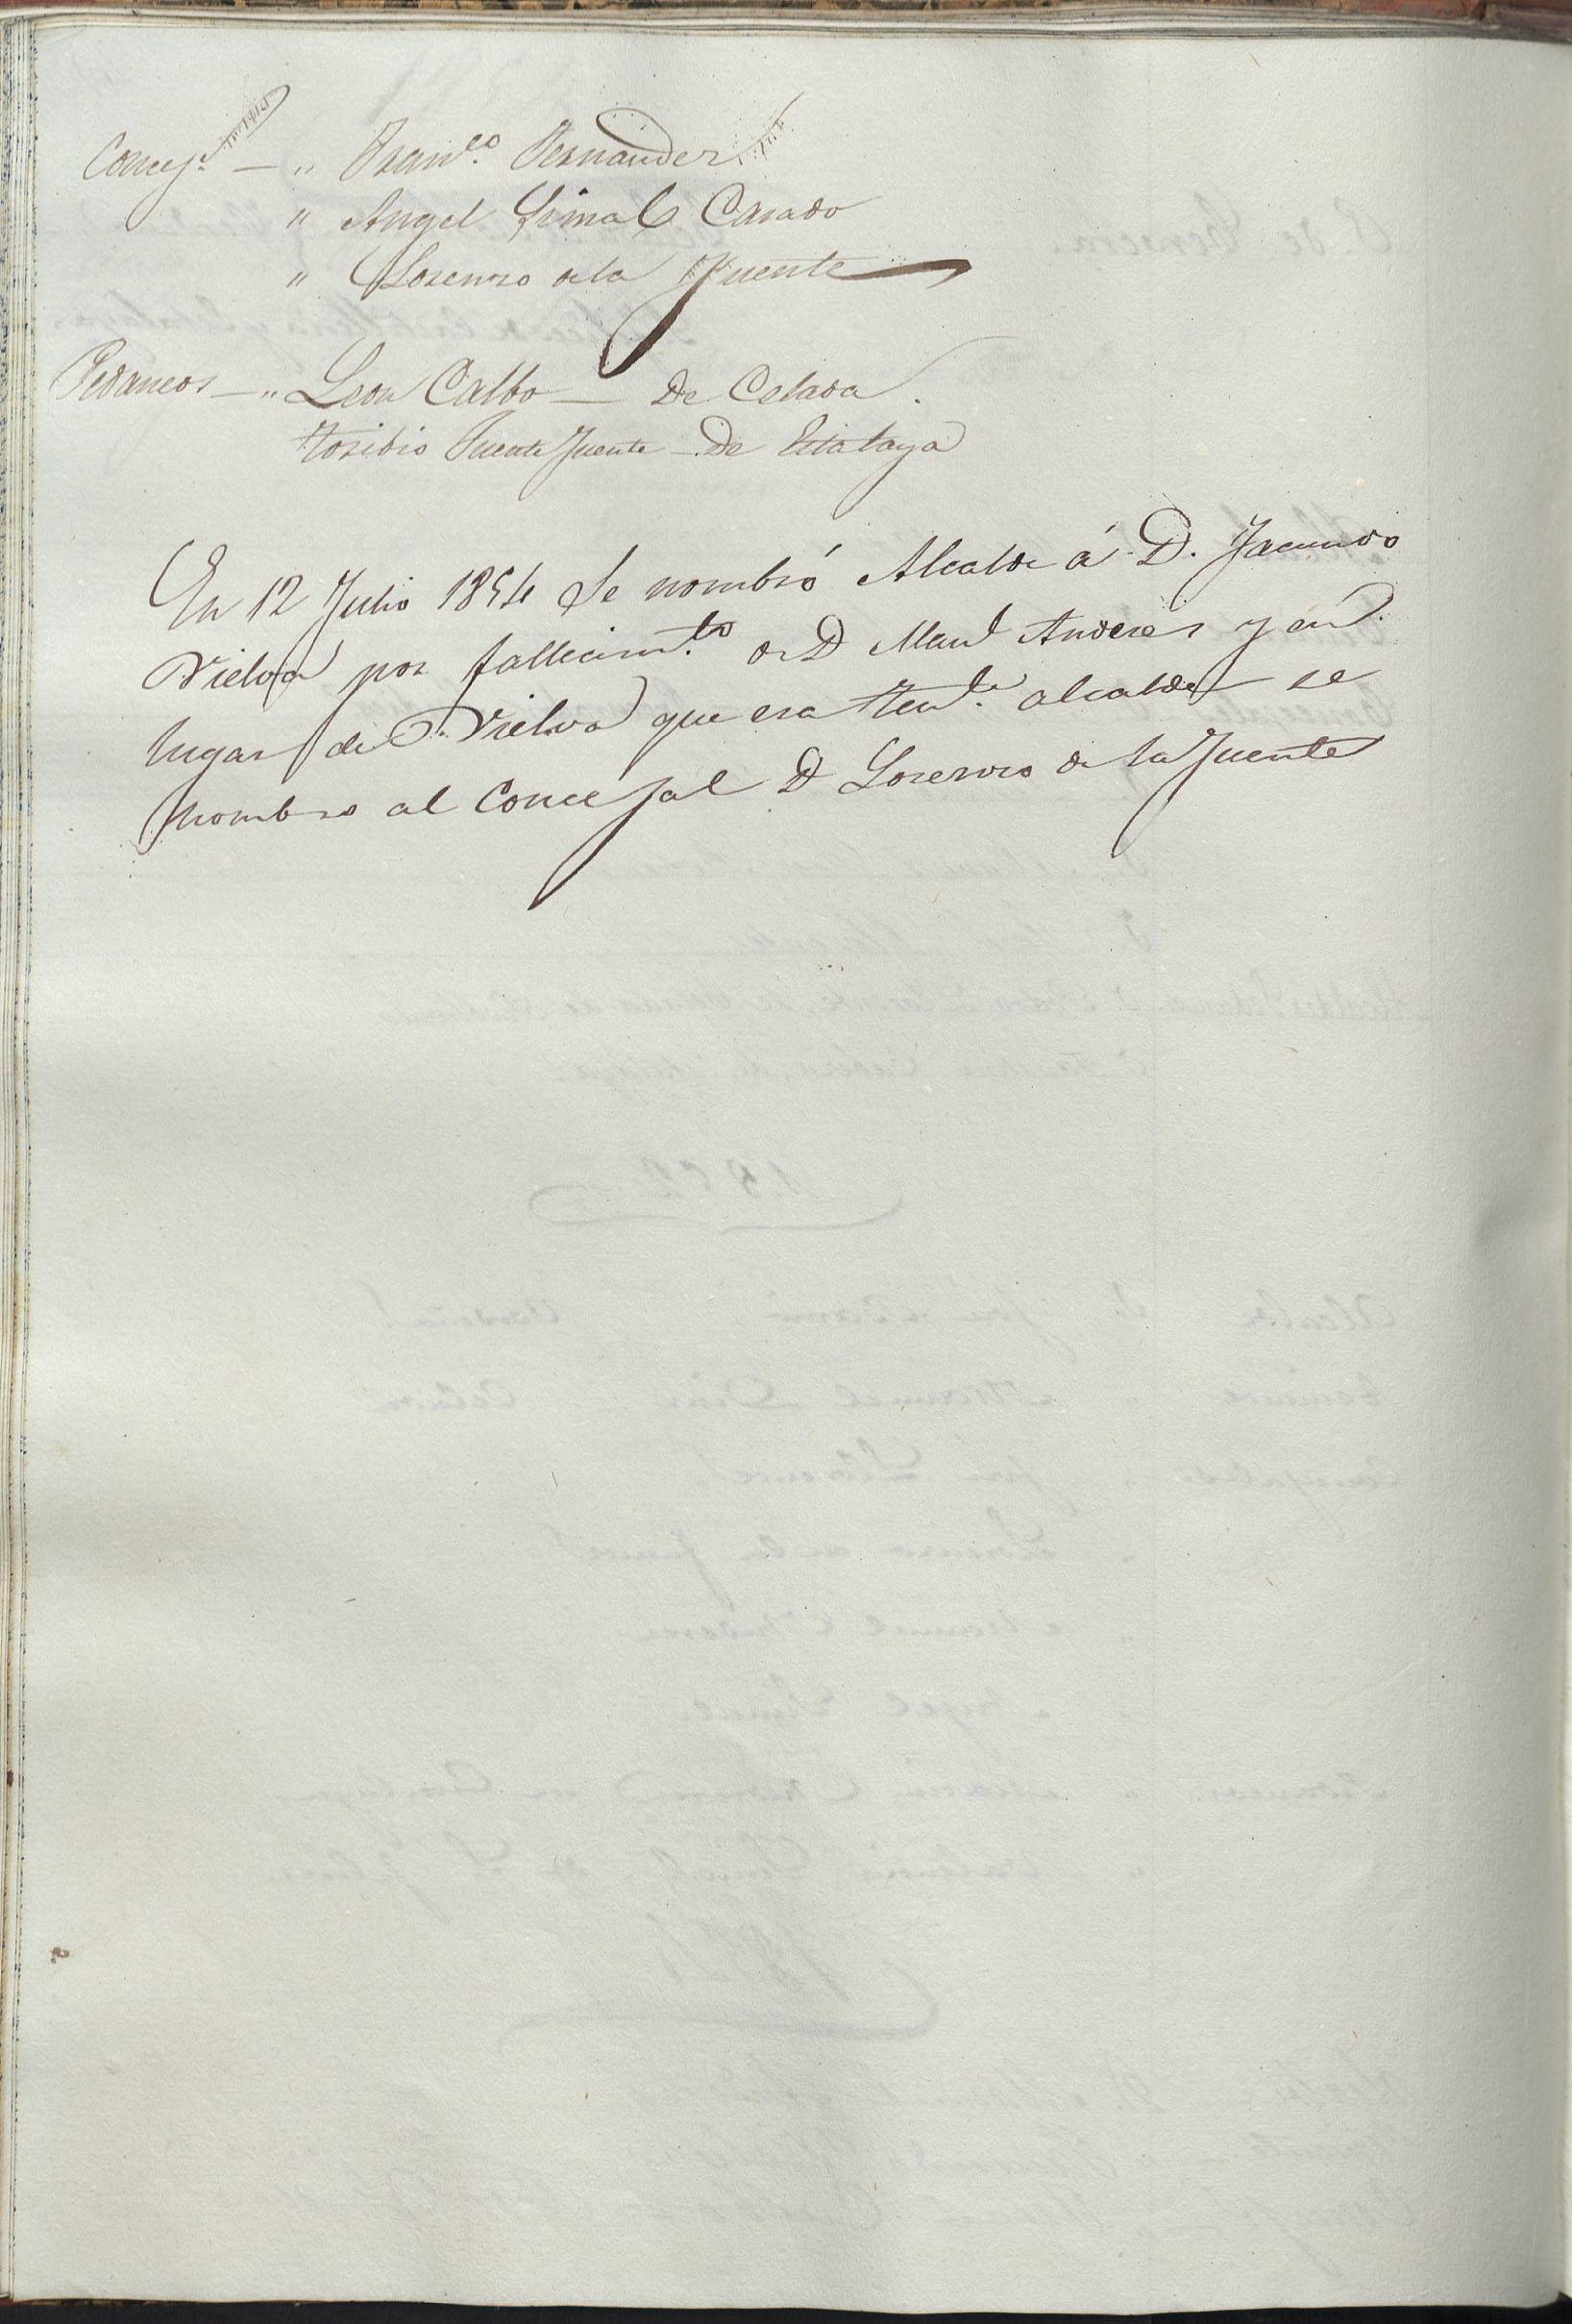 Concejs. — " Franco. Fernandez
" Angel Simal Casado
" Lorenzo de la Fuente
Pedaneos — " Leon Calbo — De Celada.
Toribio Fuente Fuente — De Estalaya
En 12 Julio 1854 se nombró Alcalde á D. Facundo
Vielva por fallecimto. de D Manl Andres y en
lugar de Vielva que era tente. alcalde se
nombro al Concejal D Lorenzo de la Fuente